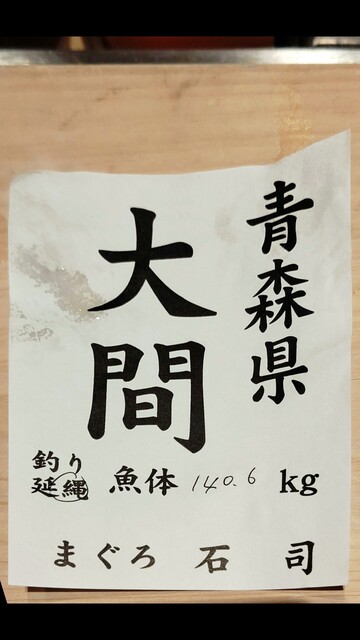 青森県
大間
釣り
延縄 魚体 140.6 kg
まぐろ 石司